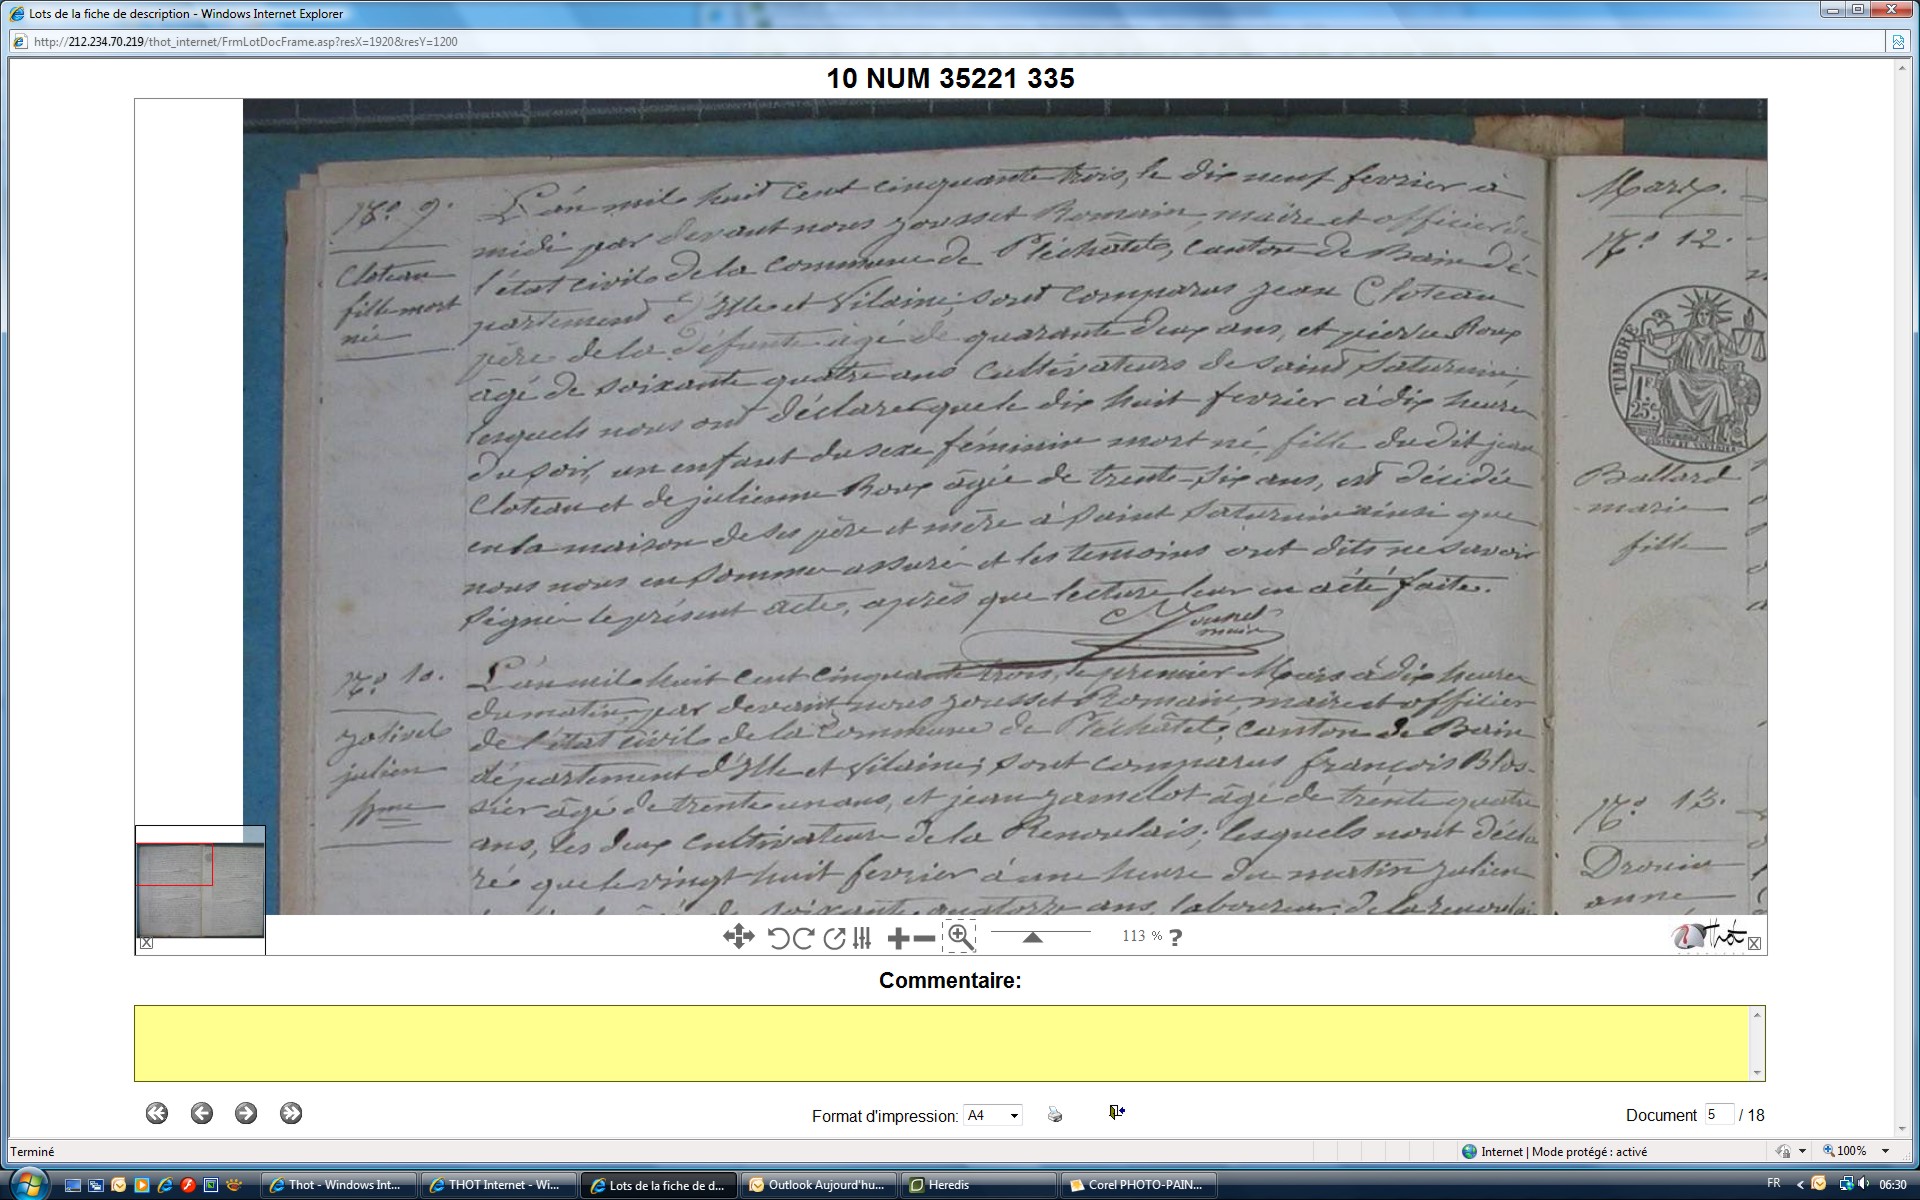 Lots de la fiche de description - Windows Internet Explorer
http://212.234.70.219/thot_internet/FrmLotDocFrame.asp?resX=1920&resY=1200
10 NUM 35221 335
N.o 9.
Cloteau
fille mort
née
L'an mil huit cent cinquante trois, le dix neuf fevrier à
midi par devant nous Jousset Romain, maire et officier de
l'état civil de la commune de Pléchâtel, canton de Bain dé-
partement d'Ille et Vilaine, sont comparus jean Cloteau
père de la défunte âgé de quarante deux ans, et pierre Roux
âgé de soixante quatre ans cultivateurs de Saint Saturnin,
lesquels nous ont déclaré que le dix huit fevrier à dix heures
du soir, un enfant du sexe féminin mort né, fille du dit jean
Cloteau et de julienne Roux âgée de trente-six ans, est décédée
en la maison de ses père et mère à Saint Saturnin ainsi que
nous nous en somme assuré et les temoins ont dits ne savoir
signer le présent acte, après que lecture leur en a été faite.
Jousset
maire
N.o 10.
jolivel
julien
hme
L'an mil huit cent cinquante trois, le premier Mars à dix heures
du matin, par devant nous Jousset Romain, maire et officier
de l'état civil de la commune de Pléchâtel, canton de Bain
département d'Ille et Vilaine; sont comparus françois Blos-
sier âgé de trente un ans, et jean jamelot âgé de trente quatre
ans, les deux cultivateurs de la Renoulais; lesquels nous décla
ré que le vingt huit fevrier à une heure du matin julien
soixante quatorze ans, laboureur, de la
Mars.
N.o 12.
TIMBRE
1F
25c
Ballard
marie
fille
N.o 13.
Drouin
anne
113 % ?
Thot
Commentaire:
Format d'impression: A4
Document 5 / 18
Terminé
Internet | Mode protégé : activé
100%
Thot - Windows Int...
THOT Internet - Wi...
Lots de la fiche de d...
Outlook Aujourd'hu...
Heredis
Corel PHOTO-PAIN...
FR
06:30